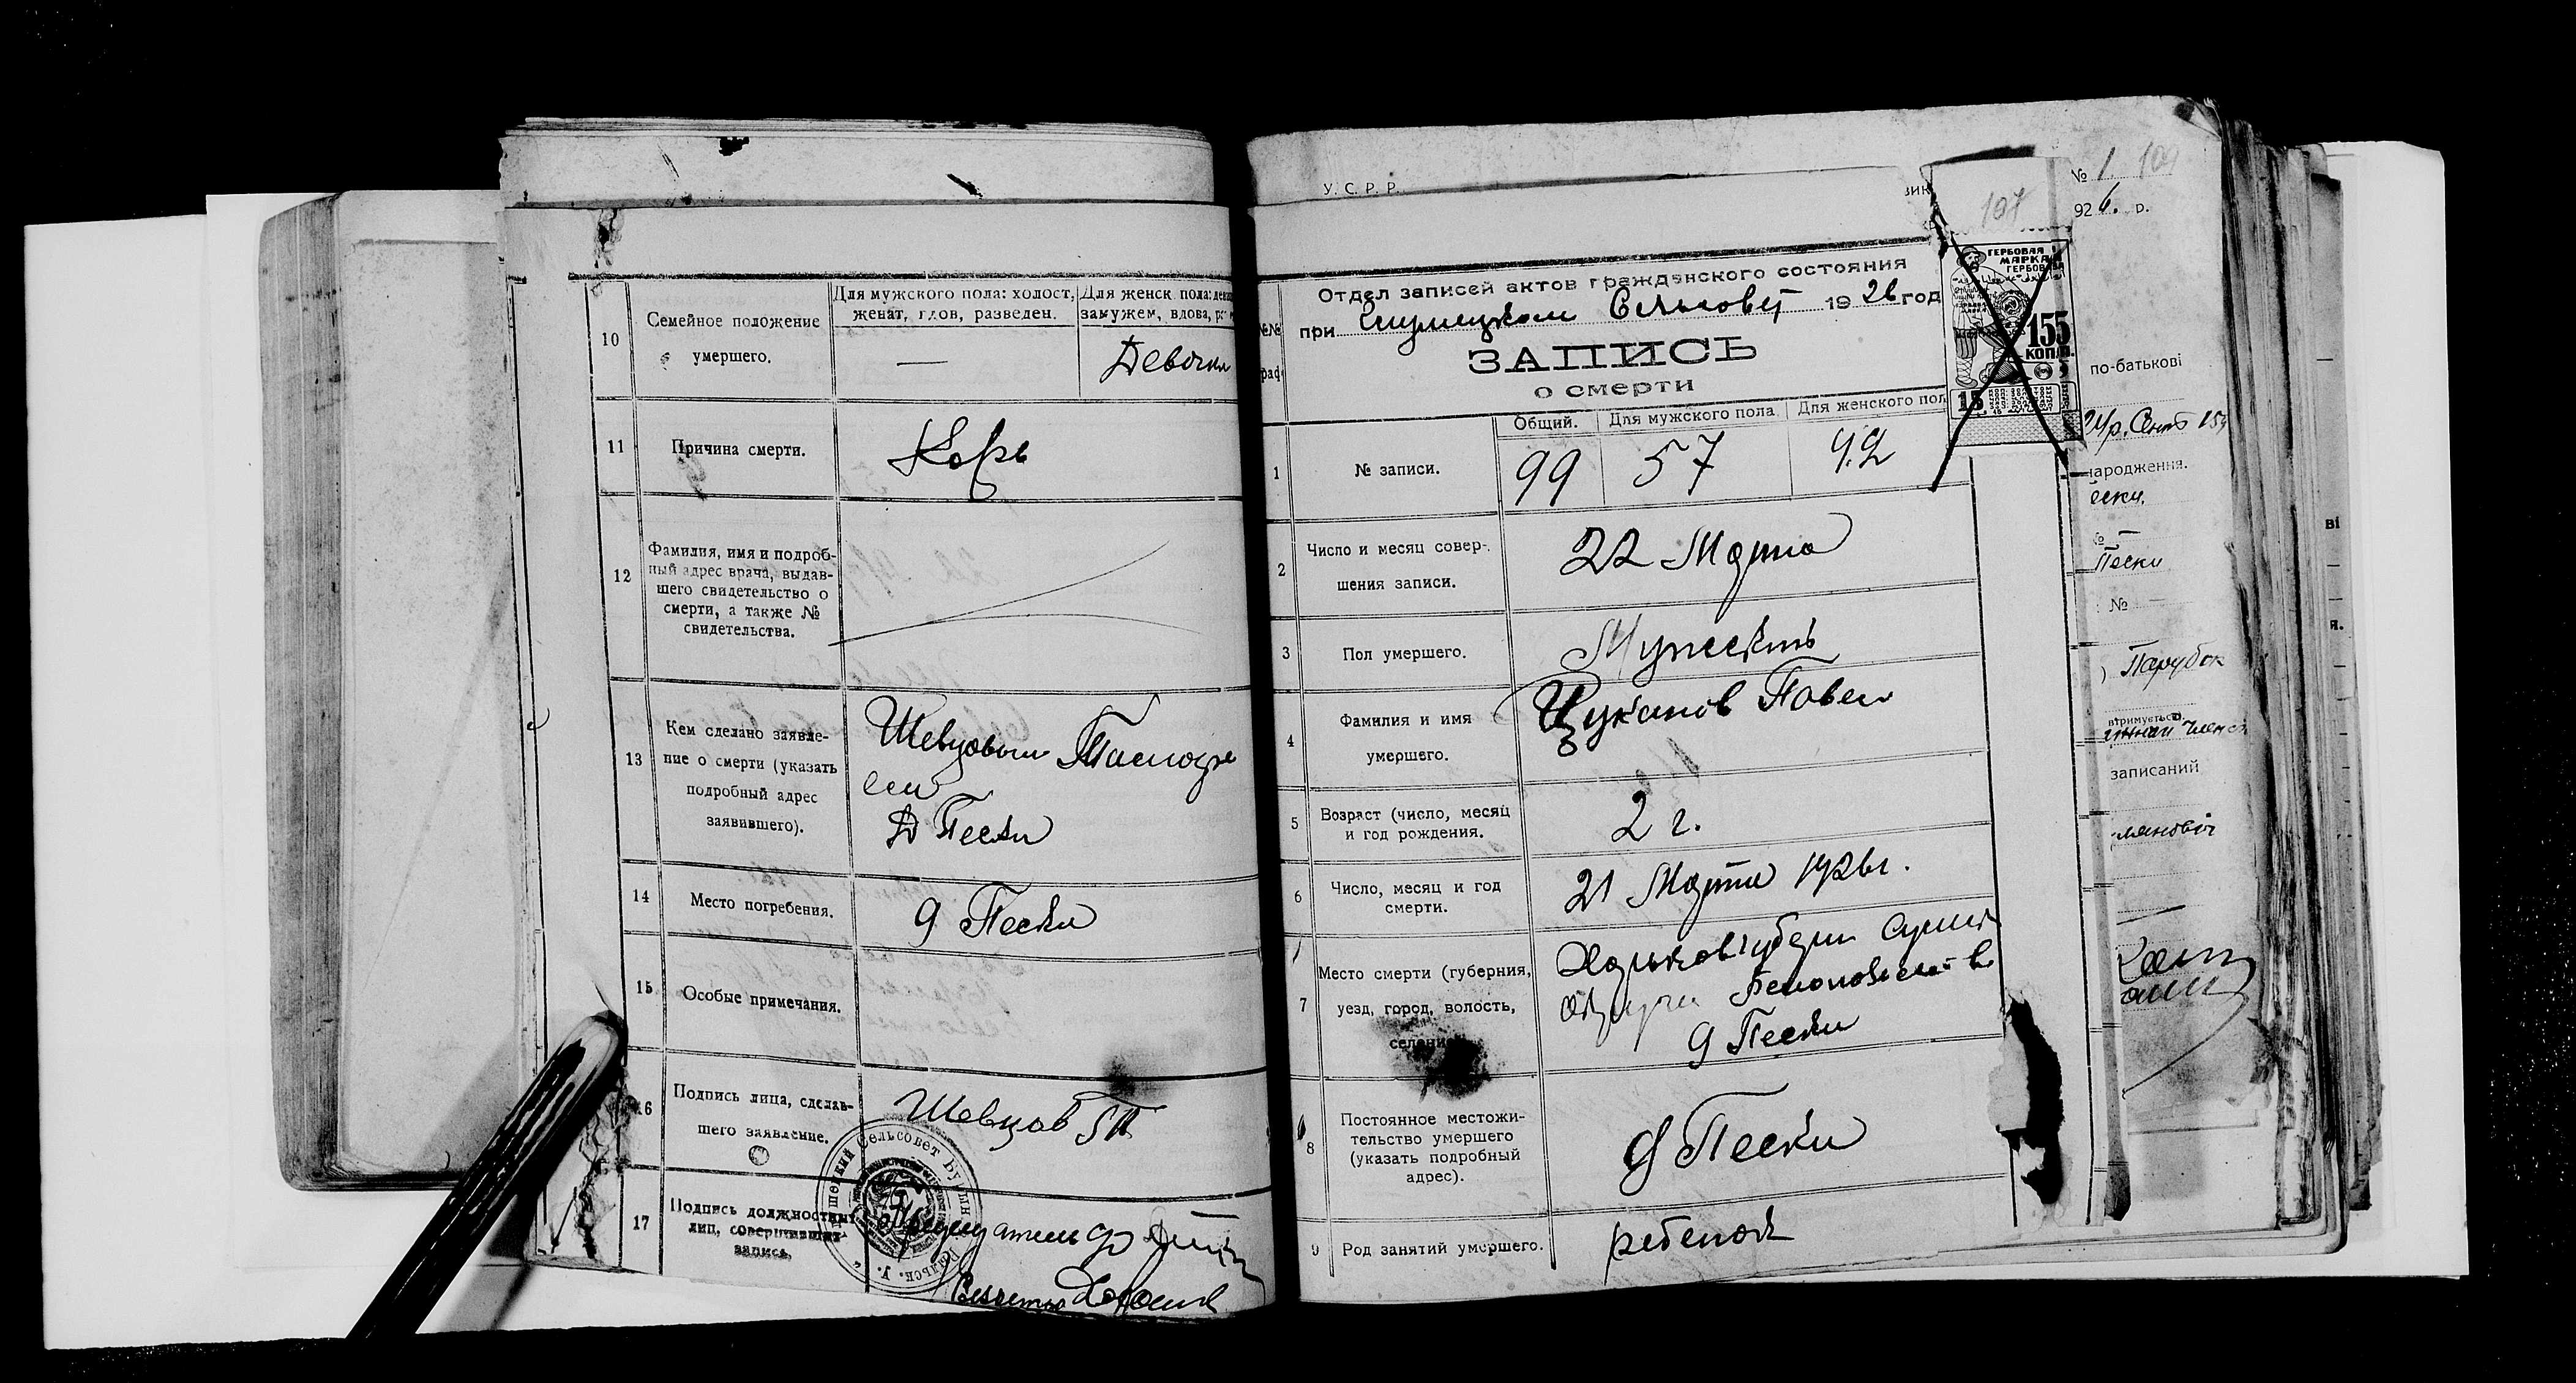 10
Семейное положение
умершего.
Для мужского пола: холост,
женат, вдов, разведен.
Для женск. пола: девиц
замужем, вдова,
—
Девочка
11
Причина смерти.
Корь
12
Фамилия, имя и подроб-
ный адрес врача, выдав-
шего свидетельство о
смерти, а также №
свидетельства.
13
Кем сделано заявле-
ние о смерти (указать
подробный адрес
заявившего).
Шевцовым
Д Пески
14
Место погребения.
д Пески
15
Особые примечания.
16
Подпись лица, сделав-
шего заявление.
Шевцов
17
Подпись должностных
лиц, совершивших
запись.
Сельсовет
У. С. Р. Р.
Отдел записей актов гражданского состояния
при 1926 год
ЗАПИСЬ
о смерти
№№
граф
107
ГЕРБОВАЯ
МАРКА
ГЕРБОВА
155
КОП.
15
1
№ записи.
Общий.
Для мужского пола
Для женского пол
99
57
42
2
Число и месяц совер-
шения записи.
22 Марта
3
Пол умершего.
Мужескть
4
Фамилия и имя
умершего.
Цуканов Павел
5
Возраст (число, месяц
и год рождения.
2 г.
6
Число, месяц и год
смерти.
21 Марта 1926г.
7
Место смерти (губерния,
уезд, город, волость,
селение
Харьков губерн Сумск
д Пески
8
Постоянное местожи-
тельство умершего
(указать подробный
адрес).
д Пески
9
Род занятий умершего.
ребенок
№ 1 109
926. р.
по-батькові
ародження.
ески.
Пески
№
Парубок
втримується
записаний
ві
я.